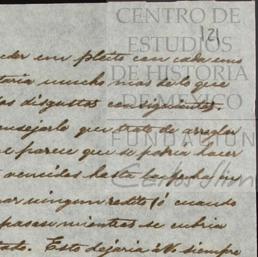 CENTRO DE
ESTUDIOS
121
DE HISTORIA
DE MÉXICO
FUNDACIÓN
Carlos Slim
der un pleito con cada uno
taria mucho mas de lo que
los disgustos consiguientes.
nsejarlo que trate de arreglar
e parece que se podria hacer
vencidos hasta la fecha
ar ningun redito ó cuando
pasase mientras se cubria
Esto dejaria á V. siempre